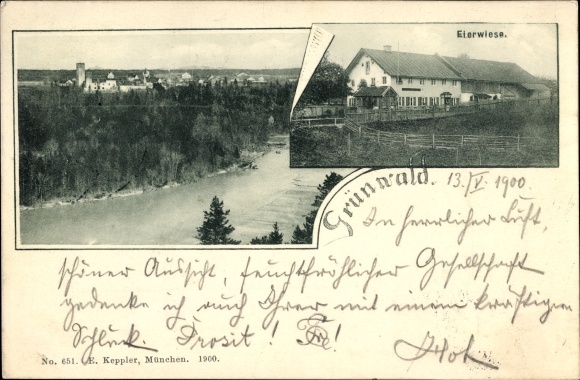 Eierwiese.
Grünwald. 13./V. 1900.
In herrlicher Luft,
schöner Aussicht, feuchtfröhlicher Gesellschaft
gedenke ich auch Ihrer mit einem kräftigen
Schluck. Prosit!
No. 651. E. Keppler, München. 1900.